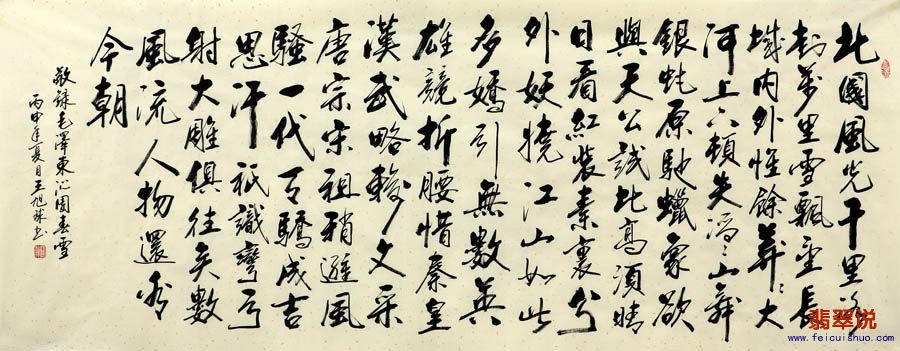 北國風光千里冰
封萬里雪飄望長
城内外惟餘莽〻大
河上下頓失滔〻山舞
銀蛇原馳蠟象欲
與天公試比高須晴
日看紅裝素裹分
外妖嬈江山如此
多嬌引無數英
雄競折腰惜秦皇
漢武略輸文采
唐宗宋祖稍遜風
騷一代天驕成吉
思汗祇識彎弓
射大雕俱往矣數
風流人物還看
今朝
敬録毛澤東沁園春雪
丙申年夏月王旭書
翡翠说
www.feicuishuo.com